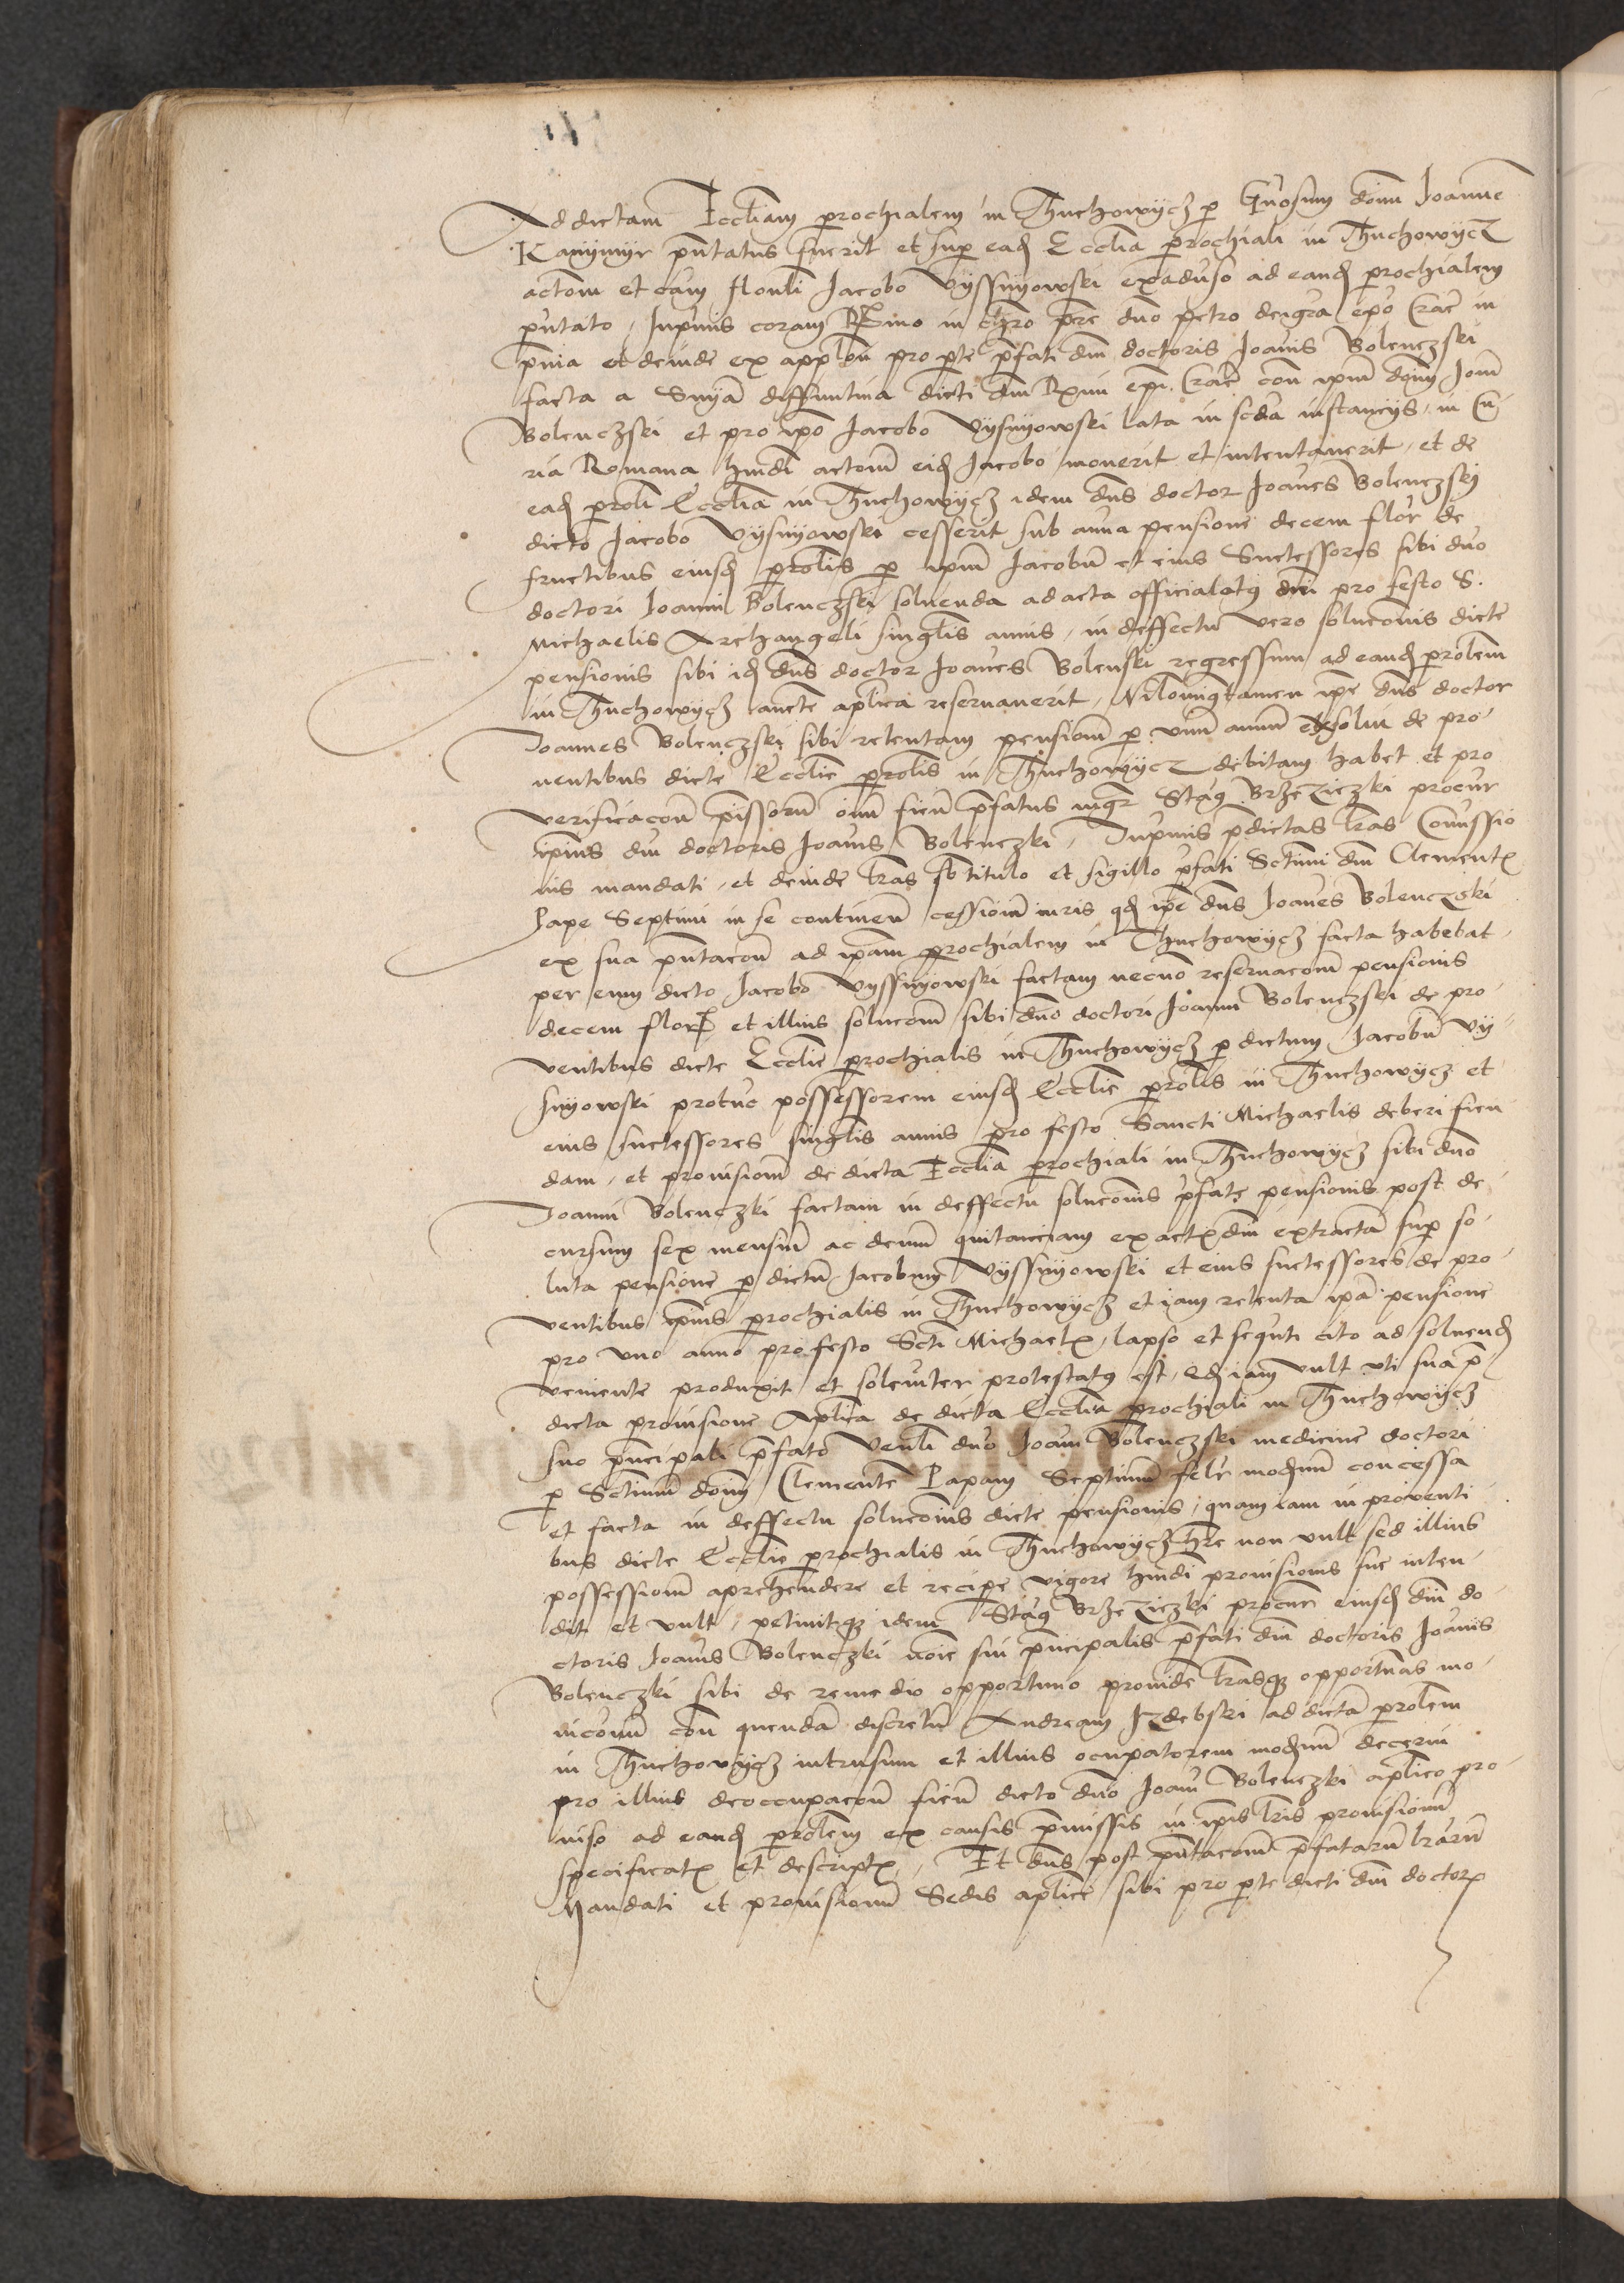 Ad dictam Eccliam prochialem in Thuchowycz p Gnosum dnm Joanne
Kamymyr pntatus fuerit et sup eadē Ecclia prochiali in Thuchowycz
actom et cam Jacobo Vyssnyowski ex aduso ad eandē prochialem
pntato, Inpmis coram Rmo in chro pre dno petro dei gra epo Crac in
pma et deinde ex applōn pro pte pfati dni doctoris Joanis Bolenczski
facta a Snya diffinitiua dicti dni Rmi epi Crac con ipm dnm Jom
Bolenczski et pro ipo Jacobo Vysnyowski lata in scda instancys, in Cu
ria Romana hmōi actom eidē Jacobo mouerit et intentauerit, et de
eadē proli Ecclia in Thuchowycz idem dns doctor Joanes Bolenczski
dicto Jacobo Vysnyowski cesserit sub annua pensione decem flor de
fructibus eiusdē prolis p ipm Jacobum et eius Successores sibi dno
doctori Joanni Bolenczski soluenda ad acta officialatus dni pro festo S.
Michaelis Archangeli singlis annis, in deffectu vero solucōnis dicte
pensionis sibi idē dns doctor Joanes Bolenski regressum ad eandē prolem
in Thuchowycz aucte aplica reseruauerit, Nilominq tamen ipe dns doctor
Joannes Bolenczski sibi retentam pensiōm p vnm annum exsolui de pro
uentibus dicte Ecclie prolis in Thuchowycz debitam habet et pro
verificacōne pissorum oim ficū pfatus mgr Staq Brzeziczki procur
ipius dni doctoris Joanis Bolenczki, Inpmis pdictas lras Comissio
nis mandati, et deinde lras sb titulo et sigillo pfati Sctmi dni Clementis
Pape Septimi in se continen cessiom iuris qd ipe dns Joanes Bolenczski
ex sua pntacōn ad ipam prochialem in Thuchowycz facta habebat,
per eum dicto Jacobo Vyssnyowski factam necno reseruacōm pensionis
decem flor et illius solucōm sibi dno doctori Joanni Bolenczski de pro
uentibus dicte Ecclie prochialis in Thuchowycz p dictum Jacobum Vy
snyowski protuc possessorem eiusdē Ecclie prolis in Thuchowycz et
eius successores singlis annis pro festo Sancti Michaelis deberi fien
dam, et prouisiom de dicta Ecclia prochiali in Thuchowycz sibi dno
Joanni Bolenczki factam in deffectu solucōnis pfate pensionis post de
cursum sex mensium ac demum quitanciam ex actis dni extractā sup so
luta pensione p dictum Jacobum Vyssnyowski et eius successores de pro
uentibus ipius prochialis in Thuchowycz et iam retenta ipā pensione
pro vno anno pro festo Scti Michaelis, lapso et sequti cito ad soluendē
veniente produxit et soleniter protestatus est, Qd iam vult vti sua p
dicta prouisione Aplica de dicta Ecclia prochiali in Thuchowycz
suo pncipali pfato Venli dno Joani Bolenczski medicine doctori
p Sctimum dnm Clementē Papam Septimum felic modernum concessa
et facta in deffectu solucōnis dicte pensionis, quam iam in prouenti
bus dicte Ecclie prochialis in Thuchowycz hre non vult sed illius
possessiom aprehendere et recipe vigore hmōi prouisionis sue inten
dit et vult, petiuitqз idem Staq Brzeziczki procur eiusdē dni do
ctoris Joanis Bolenczki noie sui pncipalis pfati dni doctoris Joanis
Bolenczki sibi de remedio opportuno prouide lrasqз opportunas mo
nicōnum con quendā discretū Andream Jzdebski ad dictā prolem
in Thuchowycz intrusum et illius ocupatorem modernum decerni
pro illius deoccupacōn ficū dicto dno Joani Bolenczki aplico pro
uiso ad eandē prolem ex causis pmissis in ipis lris prouisionum
specificatis et descriptis, Et dns post pntacōm pfatarum lrarum
Mandati et prouisionum Sedis aplice sibi pro pte dicti dni doctoris